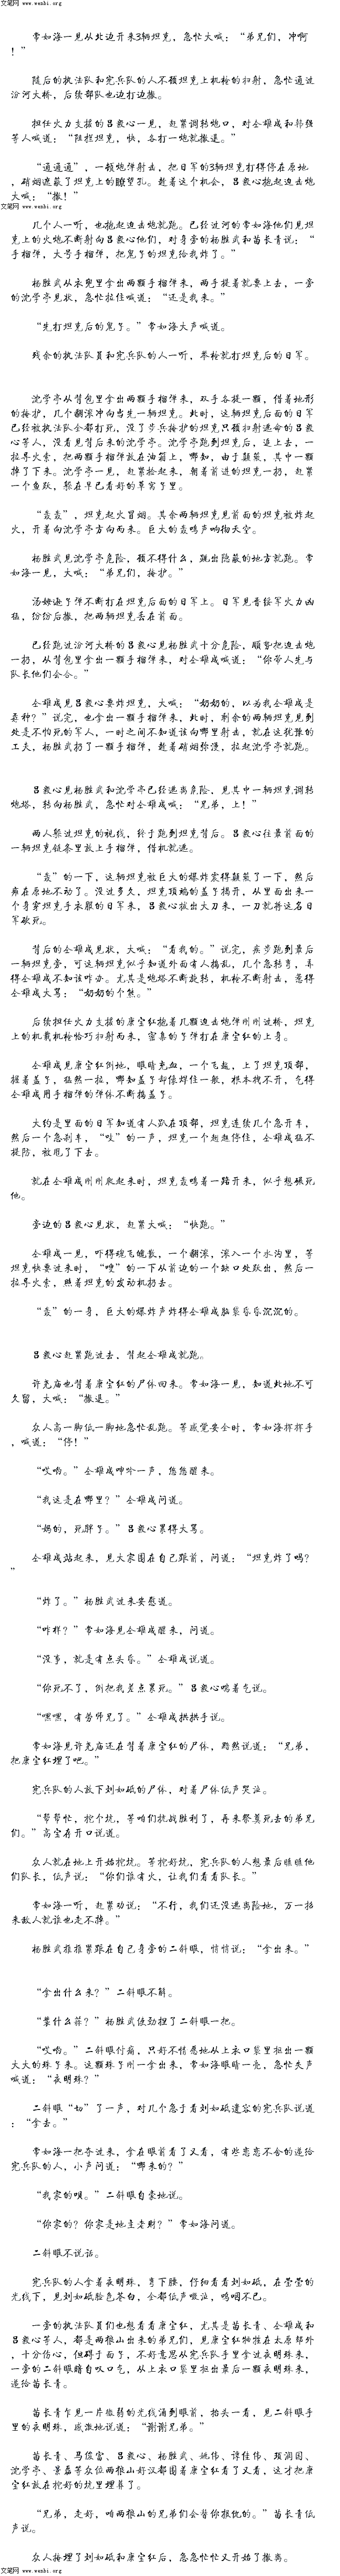 文笔网 www.wenbi.org
常如海一见从北边开来3辆坦克，急忙大喊：“弟兄们，冲啊
！”
随后的执法队和宪兵队的人不顾坦克上机枪的扫射，急忙通过
汾河大桥，后续部队也边打边撤。
担任火力支援的吕毅心一见，赶紧调转炮口，对仝雄成和祁强
等人喊道：“阻拦坦克，快，各打一炮就撤退。”
“通通通”，一顿炮弹射击，把日军的3辆坦克打得停在原地
，硝烟遮蔽了坦克上的瞭望孔。趁着这个机会，吕毅心抱起迫击炮
大喊：“撤！”
文笔网 www.wenbi.org
几个人一听，也抱起迫击炮就跑。已经过河的常如海他们见坦
克上的火炮不断射向吕毅心他们，对身旁的杨胜武和苗长青说：“
手榴弹，大号手榴弹，把鬼子的坦克给我炸了。”
杨胜武从衣兜里拿出两颗手榴弹来，两手提着就要上去，一旁
的沈学亭见状，急忙拉住喊道：“还是我来。”
“先打坦克后的鬼子。”常如海大声喊道。
残余的执法队员和宪兵队的人一听，举枪就打坦克后的日军。
沈学亭从背包里拿出两颗手榴弹来，双手各提一颗，借着地形
的掩护，几个翻滚冲向当先一辆坦克。此时，这辆坦克后面的日军
已经被执法队全都打死，没了步兵掩护的坦克只顾扫射逃命的吕毅
心等人，没看见背后来的沈学亭。沈学亭跑到坦克后，追上去，一
拉导火索，把两颗手榴弹放在油箱上，哪知，由于颠簸，其中一颗
掉了下来。沈学亭一见，赶紧捡起来，朝着前进的坦克一扔，赶紧
一个鱼跃，躲在早已看好的草窝子里。
“轰轰”，坦克起火冒烟。其余两辆坦克见前面的坦克被炸起
火，开着向沈学亭方向而来。巨大的轰鸣声响彻夜空。
杨胜武见沈学亭危险，顾不得什么，跳出隐蔽的地方就跑。常
如海一见，大喊：“弟兄们，掩护。”
汤姆逊子弹不断打在坦克后面的日军上。日军见晋绥军火力凶
猛，纷纷后撤，把两辆坦克丢在前面。
已经跑过汾河大桥的吕毅心见杨胜武十分危险，顺势把迫击炮
一扔，从背包里拿出一颗手榴弹来，对仝雄成喊道：“你带人先与
队长他们会合。”
仝雄成见吕毅心要炸坦克，大喊：“奶奶的，以为我仝雄成是
孬种？”说完，也拿出一颗手榴弹来，此时，剩余的两辆坦克见到
处是不怕死的军人，一时之间不知道该向哪里射击，就在这犹豫的
工夫，杨胜武扔了一颗手榴弹，趁着硝烟弥漫，拉起沈学亭就跑。
吕毅心见杨胜武和沈学亭已经逃离危险，见其中一辆坦克调转
炮塔，转向杨胜武，急忙对仝雄成喊：“兄弟，上！”
两人躲过坦克的视线，终于跑到坦克背后。吕毅心往最前面的
一辆坦克链条里放上手榴弹，借机就逃。
“轰”的一下，这辆坦克被巨大的爆炸震得颠簸了一下，然后
瘫在原地不动了。没过多久，坦克顶端的盖子揭开，从里面出来一
个身穿坦克手衣服的日军来，吕毅心拔出大刀来，一刀就将这名日
军砍死。
背后的仝雄成见状，大喊：“看我的。”说完，疾步跑到最后
一辆坦克旁，可这辆坦克似乎知道外面有人捣乱，几个急转弯，弄
得仝雄成不知该咋办。尤其是炮塔不断旋转，机枪不断射击，惹得
仝雄成大骂：“奶奶的个熊。”
后续担任火力支援的康宝红抱着几颗迫击炮弹刚刚过桥，坦克
上的机载机枪恰巧扫射而来，密集的子弹打在康宝红的上身。
仝雄成见康宝红倒地，眼睛充血，一个飞起，上了坦克顶部，
握着盖子，猛然一拉，哪知盖子却像焊住一般，根本拽不开，气得
仝雄成用手榴弹的弹体不断捣盖子。
大约是里面的日军知道有人趴在顶部，坦克连续几个急开车，
然后一个急刹车，“吱”的一声，坦克一个趔趄停住，仝雄成猛不
提防，被甩了下去。
就在仝雄成刚刚爬起来时，坦克轰鸣着一路开来，似乎想碾死
他。
旁边的吕毅心见状，赶紧大喊：“快跑。”
仝雄成一见，吓得魂飞魄散，一个翻滚，滚入一个水沟里，等
坦克快要过来时，“嗖”的一下从前边的一个缺口处跃出，然后一
拉导火索，照着坦克的发动机扔去。
“轰”的一身，巨大的爆炸声炸得仝雄成脑袋昏昏沉沉的。
吕毅心赶紧跑过去，背起仝雄成就跑。
许尧庙也背着康宝红的尸体回来。常如海一见，知道此地不可
久留，大喊：“撤退。”
众人高一脚低一脚地急忙乱跑。等感觉安全时，常如海挥挥手
，喊道：“停！”
“哎哟。”仝雄成呻吟一声，悠悠醒来。
“我这是在哪里？”仝雄成问道。
“妈的，死胖子。”吕毅心累得大骂。
仝雄成站起来，见大家围在自己跟前，问道：“坦克炸了吗？
”
“炸了。”杨胜武过来安慰道。
“咋样？”常如海见仝雄成醒来，问道。
“没事，就是有点头昏。”仝雄成说道。
“你死不了，倒把我差点累死。”吕毅心喘着气说。
“嘿嘿，有劳师兄了。”仝雄成拱拱手说。
常如海见许尧庙还在背着康宝红的尸体，黯然说道：“兄弟，
把康宝红埋了吧。”
宪兵队的人放下刘如砥的尸体，对着尸体低声哭泣。
“帮帮忙，挖个坑，等咱们抗战胜利了，再来祭奠死去的弟兄
们。”高宝在开口说道。
众人就在地上开始挖坑。等挖好坑，宪兵队的人想最后瞧瞧他
们队长，低声说：“你们谁有火，让我们看看队长。”
常如海一听，赶紧劝说：“不行，我们还没逃离险地，万一招
来敌人就谁也走不掉。”
杨胜武推推紧跟在自己身旁的二斜眼，悄悄说：“拿出来。”
“拿出什么来？”二斜眼不解。
“装什么蒜？”杨胜武使劲捏了二斜眼一把。
“哎哟。”二斜眼忖痛，只好不情愿地从上衣口袋里掏出一颗
大大的珠子来。这颗珠子刚一拿出来，常如海眼睛一亮，急忙失声
喊道：“夜明珠？”
二斜眼“切”了一声，对几个急于看刘如砥遗容的宪兵队说道
：“拿去。”
常如海一把夺过来，拿在眼前看了又看，有些恋恋不舍的递给
宪兵队的人，小声问道：“哪来的？”
“我家的呗。”二斜眼自豪地说。
“你家的？你家是地主老财？”常如海问道。
二斜眼不说话。
宪兵队的人拿着夜明珠，弯下腰，仔细看看刘如砥，在莹莹的
光线下，见刘如砥脸色苍白，全都低声啜泣，呜咽不已。
一旁的执法队员们也想看看康宝红，尤其是苗长青、仝雄成和
吕毅心等人，都是两狼山出来的弟兄们，见康宝红牺牲在太原郊外
，十分伤心，但碍于面子，不好意思从宪兵队手里拿过夜明珠来，
一旁的二斜眼暗自叹口气，从上衣口袋里掏出最后一颗夜明珠来，
递给苗长青。
苗长青乍见一片微弱的光线涌到眼前，抬头一看，见二斜眼手
里的夜明珠，感激地说道：“谢谢兄弟。”
苗长青、马俊富、吕毅心、杨胜武、姚伟、谭佳伟、顼润国、
沈学亭、景磊等众位两狼山好汉都围着康宝红看了又看，这才把康
宝红放在挖好的坑里埋葬了。
“兄弟，走好，咱两狼山的兄弟们会替你报仇的。”苗长青低
声说。
众人掩埋了刘如砥和康宝红后，急急忙忙又开始了撤离。
文笔网 www.wenbi.org